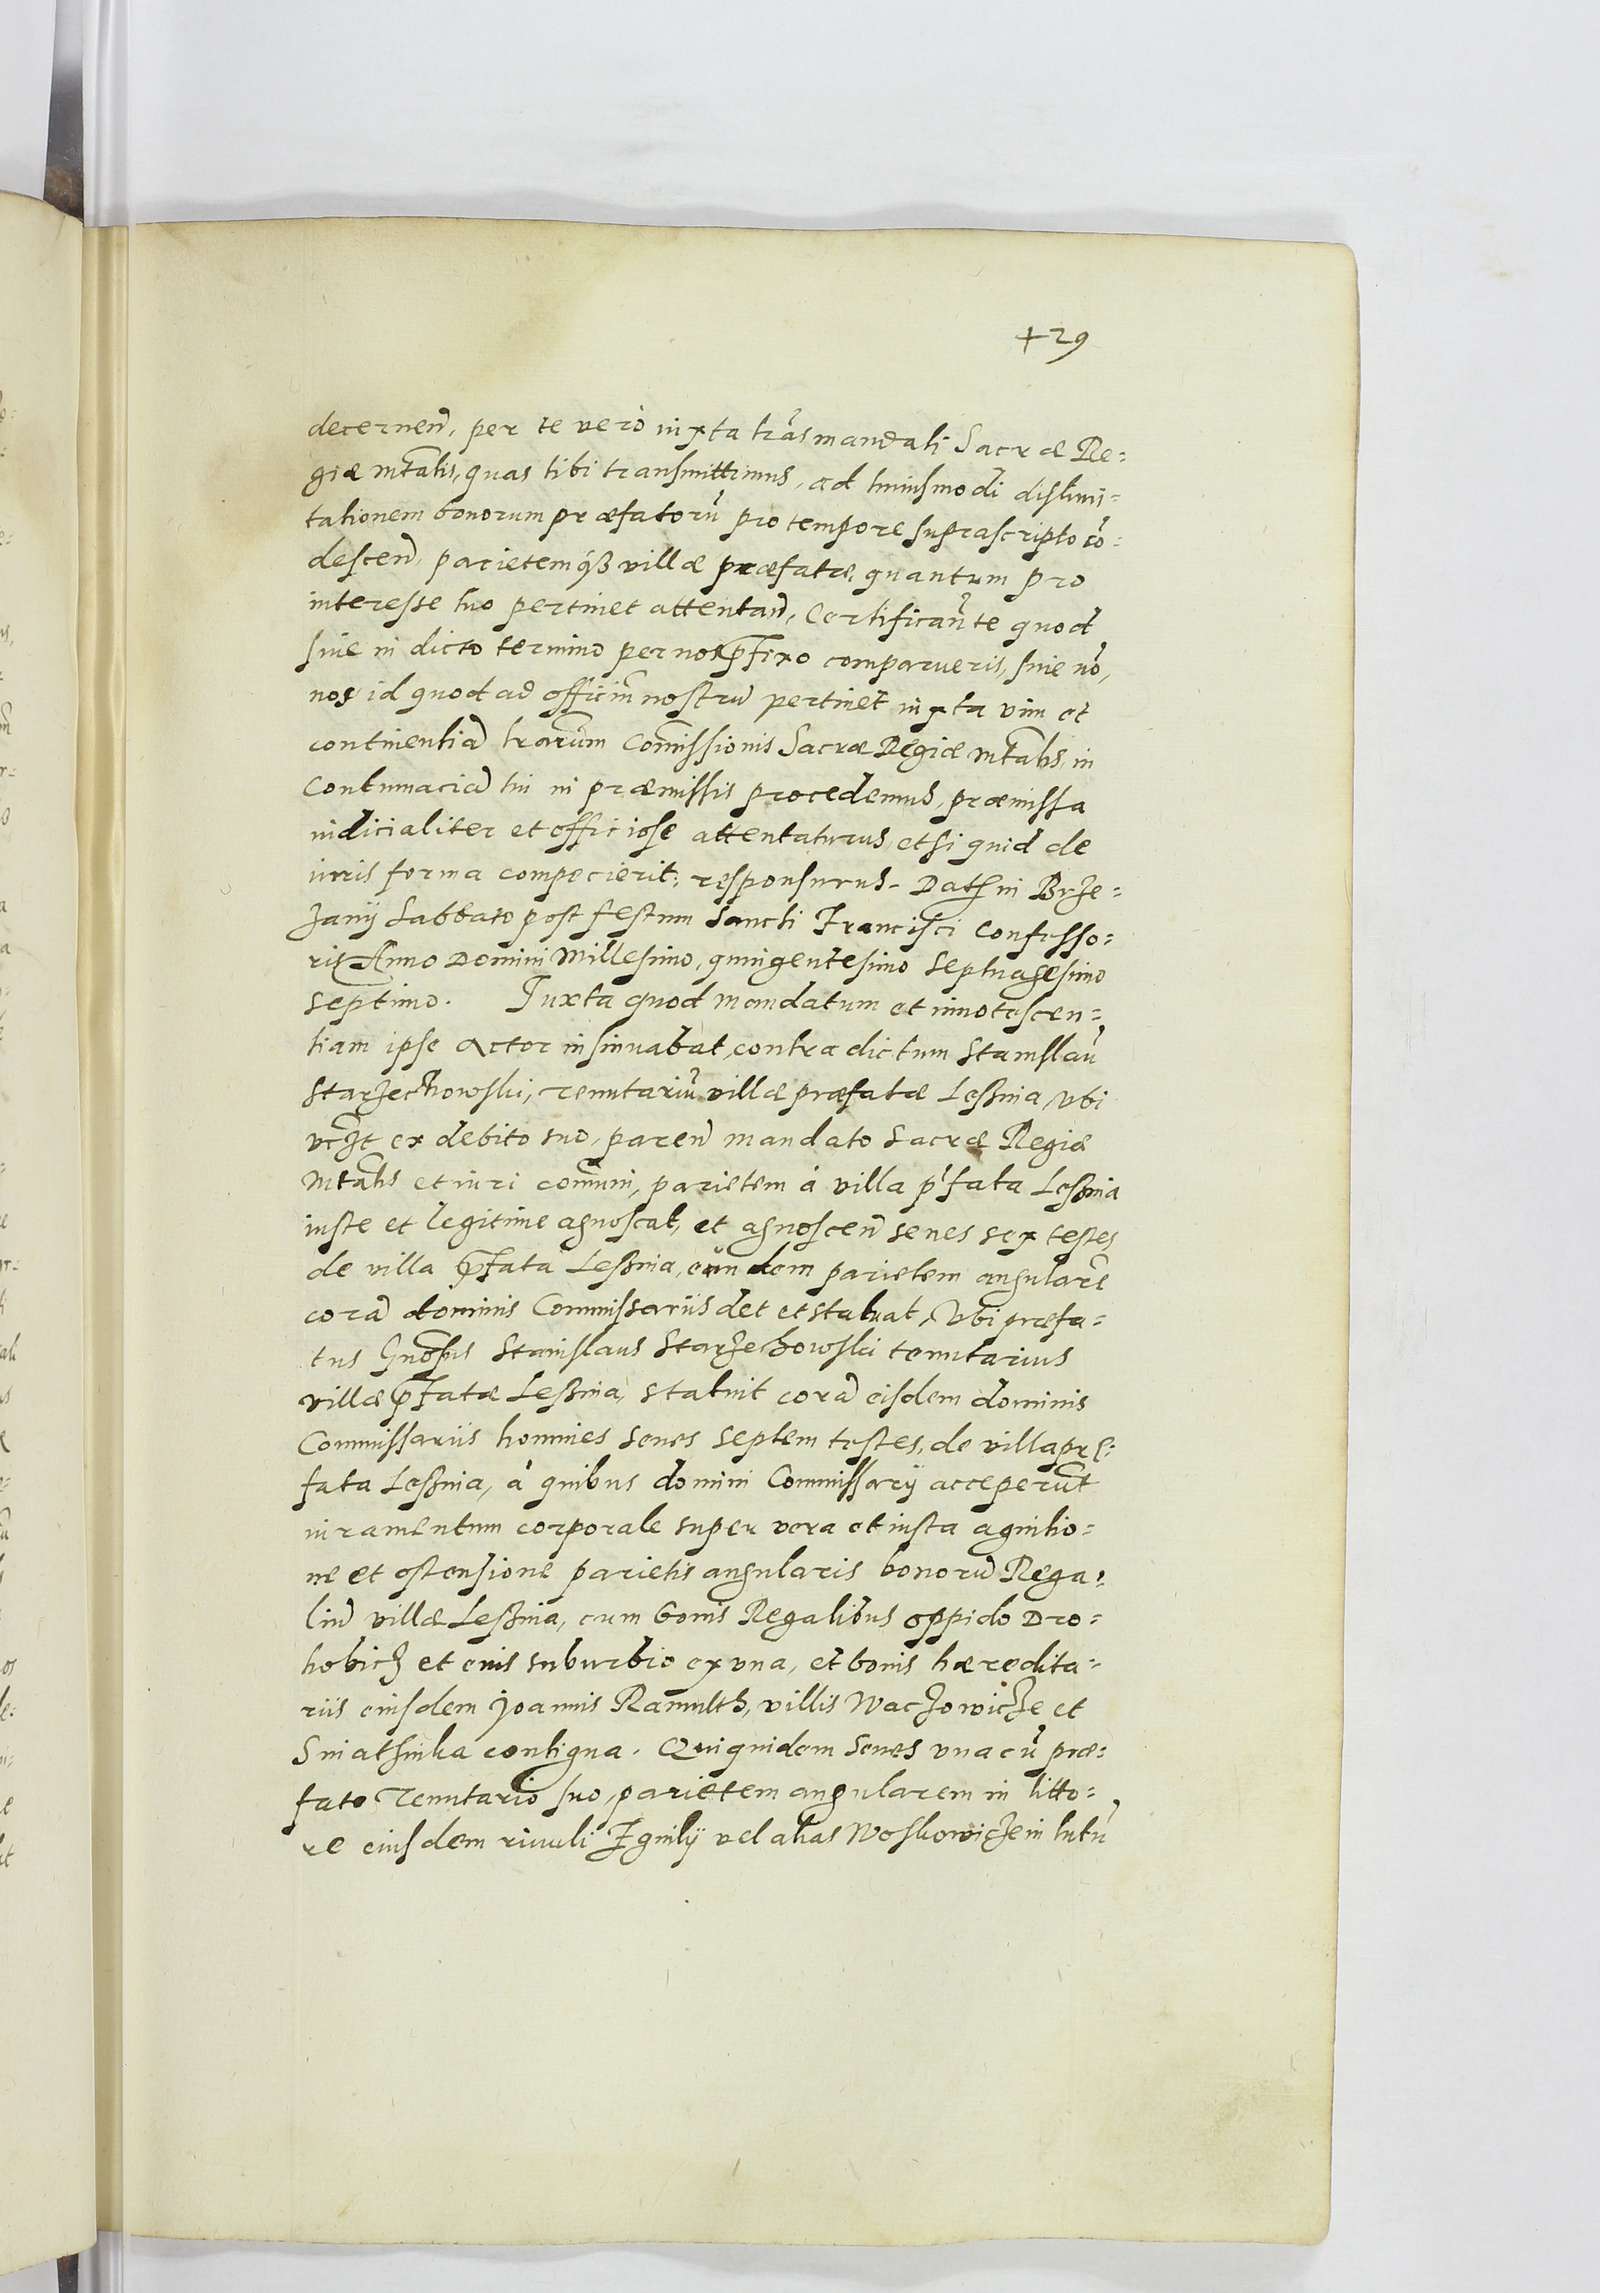 +29
decernen̄, per te vero iuxta lr̄as mandati Sacræ Re=
giæ Mtatis, quas tibi transmittimus, ad huiusmodi dislimi=
tationem bonorum præfatorū pro tempore suprascripto cō=
descen̄, parietemq́ꝫ villæ præfatæ, quantum pro
interesse tuo pertinet attentan̄, Certifican̄ te quod
siue in dicto termino per nos p̄fixo comparueris, siue nō,
nos id quod ad officiū nostrū pertinet iuxta vim et
continentiā lrārum Com̄issionis Sacræ Regiæ Mtatis, in
Contumaciā tui in præmissis procedemus, præmissa
iudicialiter et officiose attentaturus, et si quid de
iuris forma compecierit, responsurus. Dat̄ in Brze=
zanÿ Sabbato post festum Sancti Francisci Confesso=
ris Anno Domini Millesimo, quingentesimo Septuagesimo
septimo. Iuxta quod mandatum et innotescen=
tiam ipse Actor insinuabat, contra dictum Stanislaū
Starzechowski, tenutariū villæ præfatæ Leßnia, vbi
vt̄ ex debito suo, paren̄ mandato Sacræ Regiæ
Mtatis et iuri com̄uni, parietem á villa p̄fata Leßnia
iuste et legitime agnoscat, et agnoscen̄ senes sex testes
de villa p̄fata Leßnia, eundem parietem angularē
corā dominis Commissariis det et statuat, Vbi præfa=
tus Gn̄osus Stanislaus Starzechowski tenutarius
villæ p̄fatæ Leßnia, statuit corā eisdem dominis
Commissariis homines senes septem testes, de villa prę=
fata Leßnia, á quibus domini Commissarÿ acceperūt
iuramentum corporale super vera et iusta agnitio=
ne et ostensione parietis angularis bonorū Rega=
liū villæ Leßnia, cum bonis Regalibus oppido Dro=
hobicz et eius suburbio ex vna, et bonis hæredita=
riis eiusdem Joannis Ramulth, villis Waczowicze et
Sniathinka contigua. Qui quidem Senes vna cū præ=
fato Tenutario suo, parietem angularem in litto=
re eiusdem riuuli Zgnilÿ vel alias Woskowicze in lutū